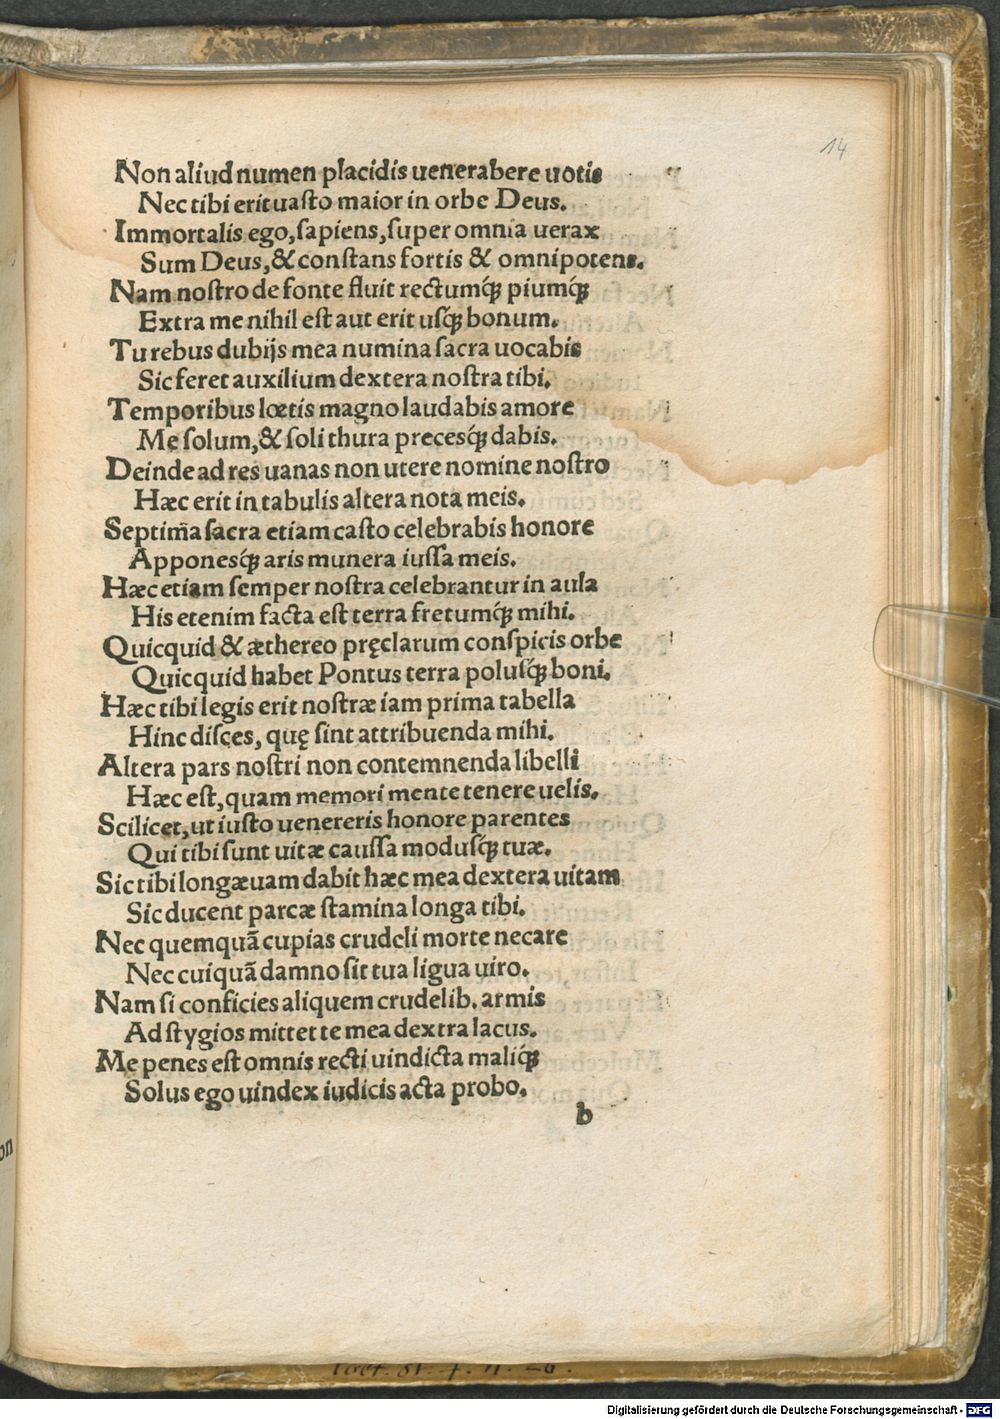 14
Non aliud numen placidis uenerabere uotis
Nec tibi erit uasto maior in orbe Deus.
Immortalis ego, sapiens, super omnia uerax
Sum Deus, & constans fortis & omnipotens.
Nam nostro de fonte fluit rectumq́; piumq́;
Extra me nihil est aut erit usq́; bonum.
Tu rebus dubijs mea numina sacra uocabis
Sic feret auxilium dextera nostra tibi.
Temporibus lœtis magno laudabis amore
Me solum, & soli thura precesq́; dabis.
Deinde ad res uanas non utere nomine nostro
Hæc erit in tabulis altera nota meis.
Septim̃a sacra etiam casto celebrabis honore
Apponesq́; aris munera iussa meis.
Hæc etiam semper nostra celebrantur in aula
His etenim facta est terra fretumq́; mihi.
Quicquid & æthereo pręclarum conspicis orbe
Quicquid habet Pontus terra polusq́; boni.
Hæc tibi legis erit nostræ iam prima tabella
Hinc disces, quę sint attribuenda mihi.
Altera pars nostri non contemnenda libelli
Hæc est, quam memori mente tenere uelis.
Scilicet, ut iusto uenereris honore parentes
Qui tibi sunt uitæ caussa modusq́; tuæ.
Sic tibi longæuam dabit hæc mea dextera uitam
Sic ducent parcæ stamina longa tibi.
Nec quemquã cupias crudeli morte necare
Nec cuiquã damno sit tua ligua uiro.
Nam si conficies aliquem crudelib. armis
Ad stygios mittet te mea dextra lacus.
Me penes est omnis recti uindicta maliq́;
Solus ego uindex iudicis acta probo.
b
on
Digitalisierung gefördert durch die Deutsche Forschungsgemeinschaft - DFG